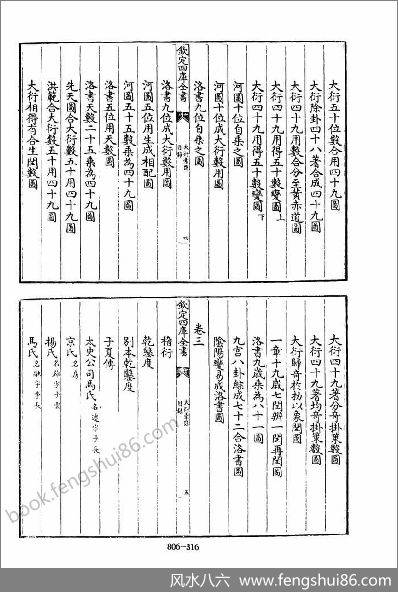 大衍五十位數合用四十九圖
大衍除卦四十八蓍合成四十九圖
大衍四十九用數合分至黃赤道圖
大衍四十九用得五十數變圖上
大衍四十九用得五十數變圖下
河圖十位自乘之圖
河圖十位成大衍數用圖
洛書九位自乘之圖
欽定四庫全書
大衍索隱
目錄
四
洛書九位成大衍數用圖
河圖五位用生成相配圖
河圖五十五數乘為四十九圖
洛書五位用天數圖
洛書天數二十五乘為四十九圖
先天圖合大衍數五十用四十九圖
洪範合大衍數五十用四十九圖
大衍相得各合生閏數圖
大衍四十九蓍分奇掛策數圖
大衍四十九蓍均奇掛策數圖
大衍歸奇於扐以象閏圖
一章十九歲七閏辨一閏再閏圖
洛書九歲乘為八十一圖
九宮八卦綜成七十二合洛書圖
陰陽變易成洛書圖
卷三
欽定四庫全書
大衍索隱
目錄
五
稽衍
乾鑿度
別本乾鑿度
子夏傳
太史公司馬氏名遷字子長
京氏名房
揚氏名雄字子雲
馬氏
book.fengshui86.com
806-316
风水八六 www.fengshui86.com